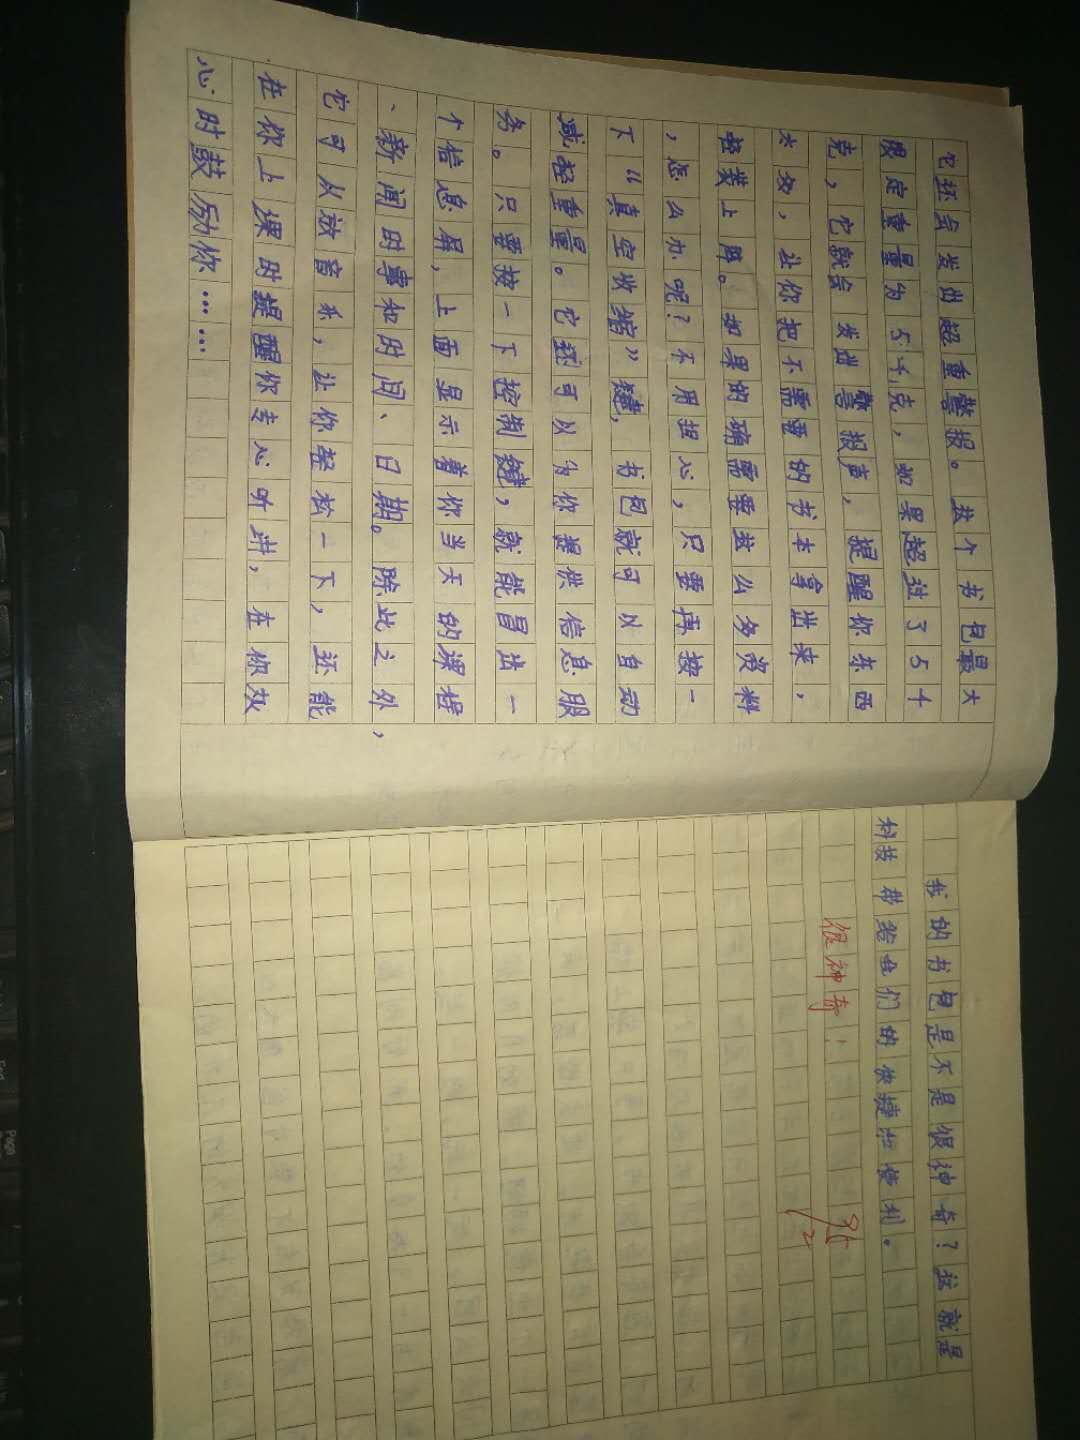 它还会发出超重警报。这个书包最大
限定重量为5千克,如果超过了5千
克,它就会发出警报声,提醒你东西
太多,让你把不需要的书本拿出来,
轻装上阵。如果的确需要这么多资料
,怎么办呢?不用担心,只要再按一
下“真空收缩”键,书包就可以自动
减轻重量。它还可以为你提供信息服
务。只要按一下控制键,就能冒出一
个信息屏,上面显示着你当天的课程
、新闻时事和时间、日期。除此之外,
它可从放音乐,让你轻松一下,还能
在你上课时提醒你专心听讲,在你灰
心时鼓励你……
我的书包是不是很神奇?这就是
科技带给我们的快捷和便利。
很神奇!